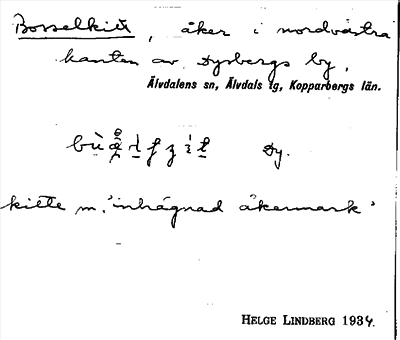 Bosselkitt, åker i nordvästra
kanten av Dysbergs by,
Älvdalens sn, Älvdals tg, Kopparbergs län.
Dy.
kitte m. 'inhägnad åkermark'
HELGE LINDBERG 1934.